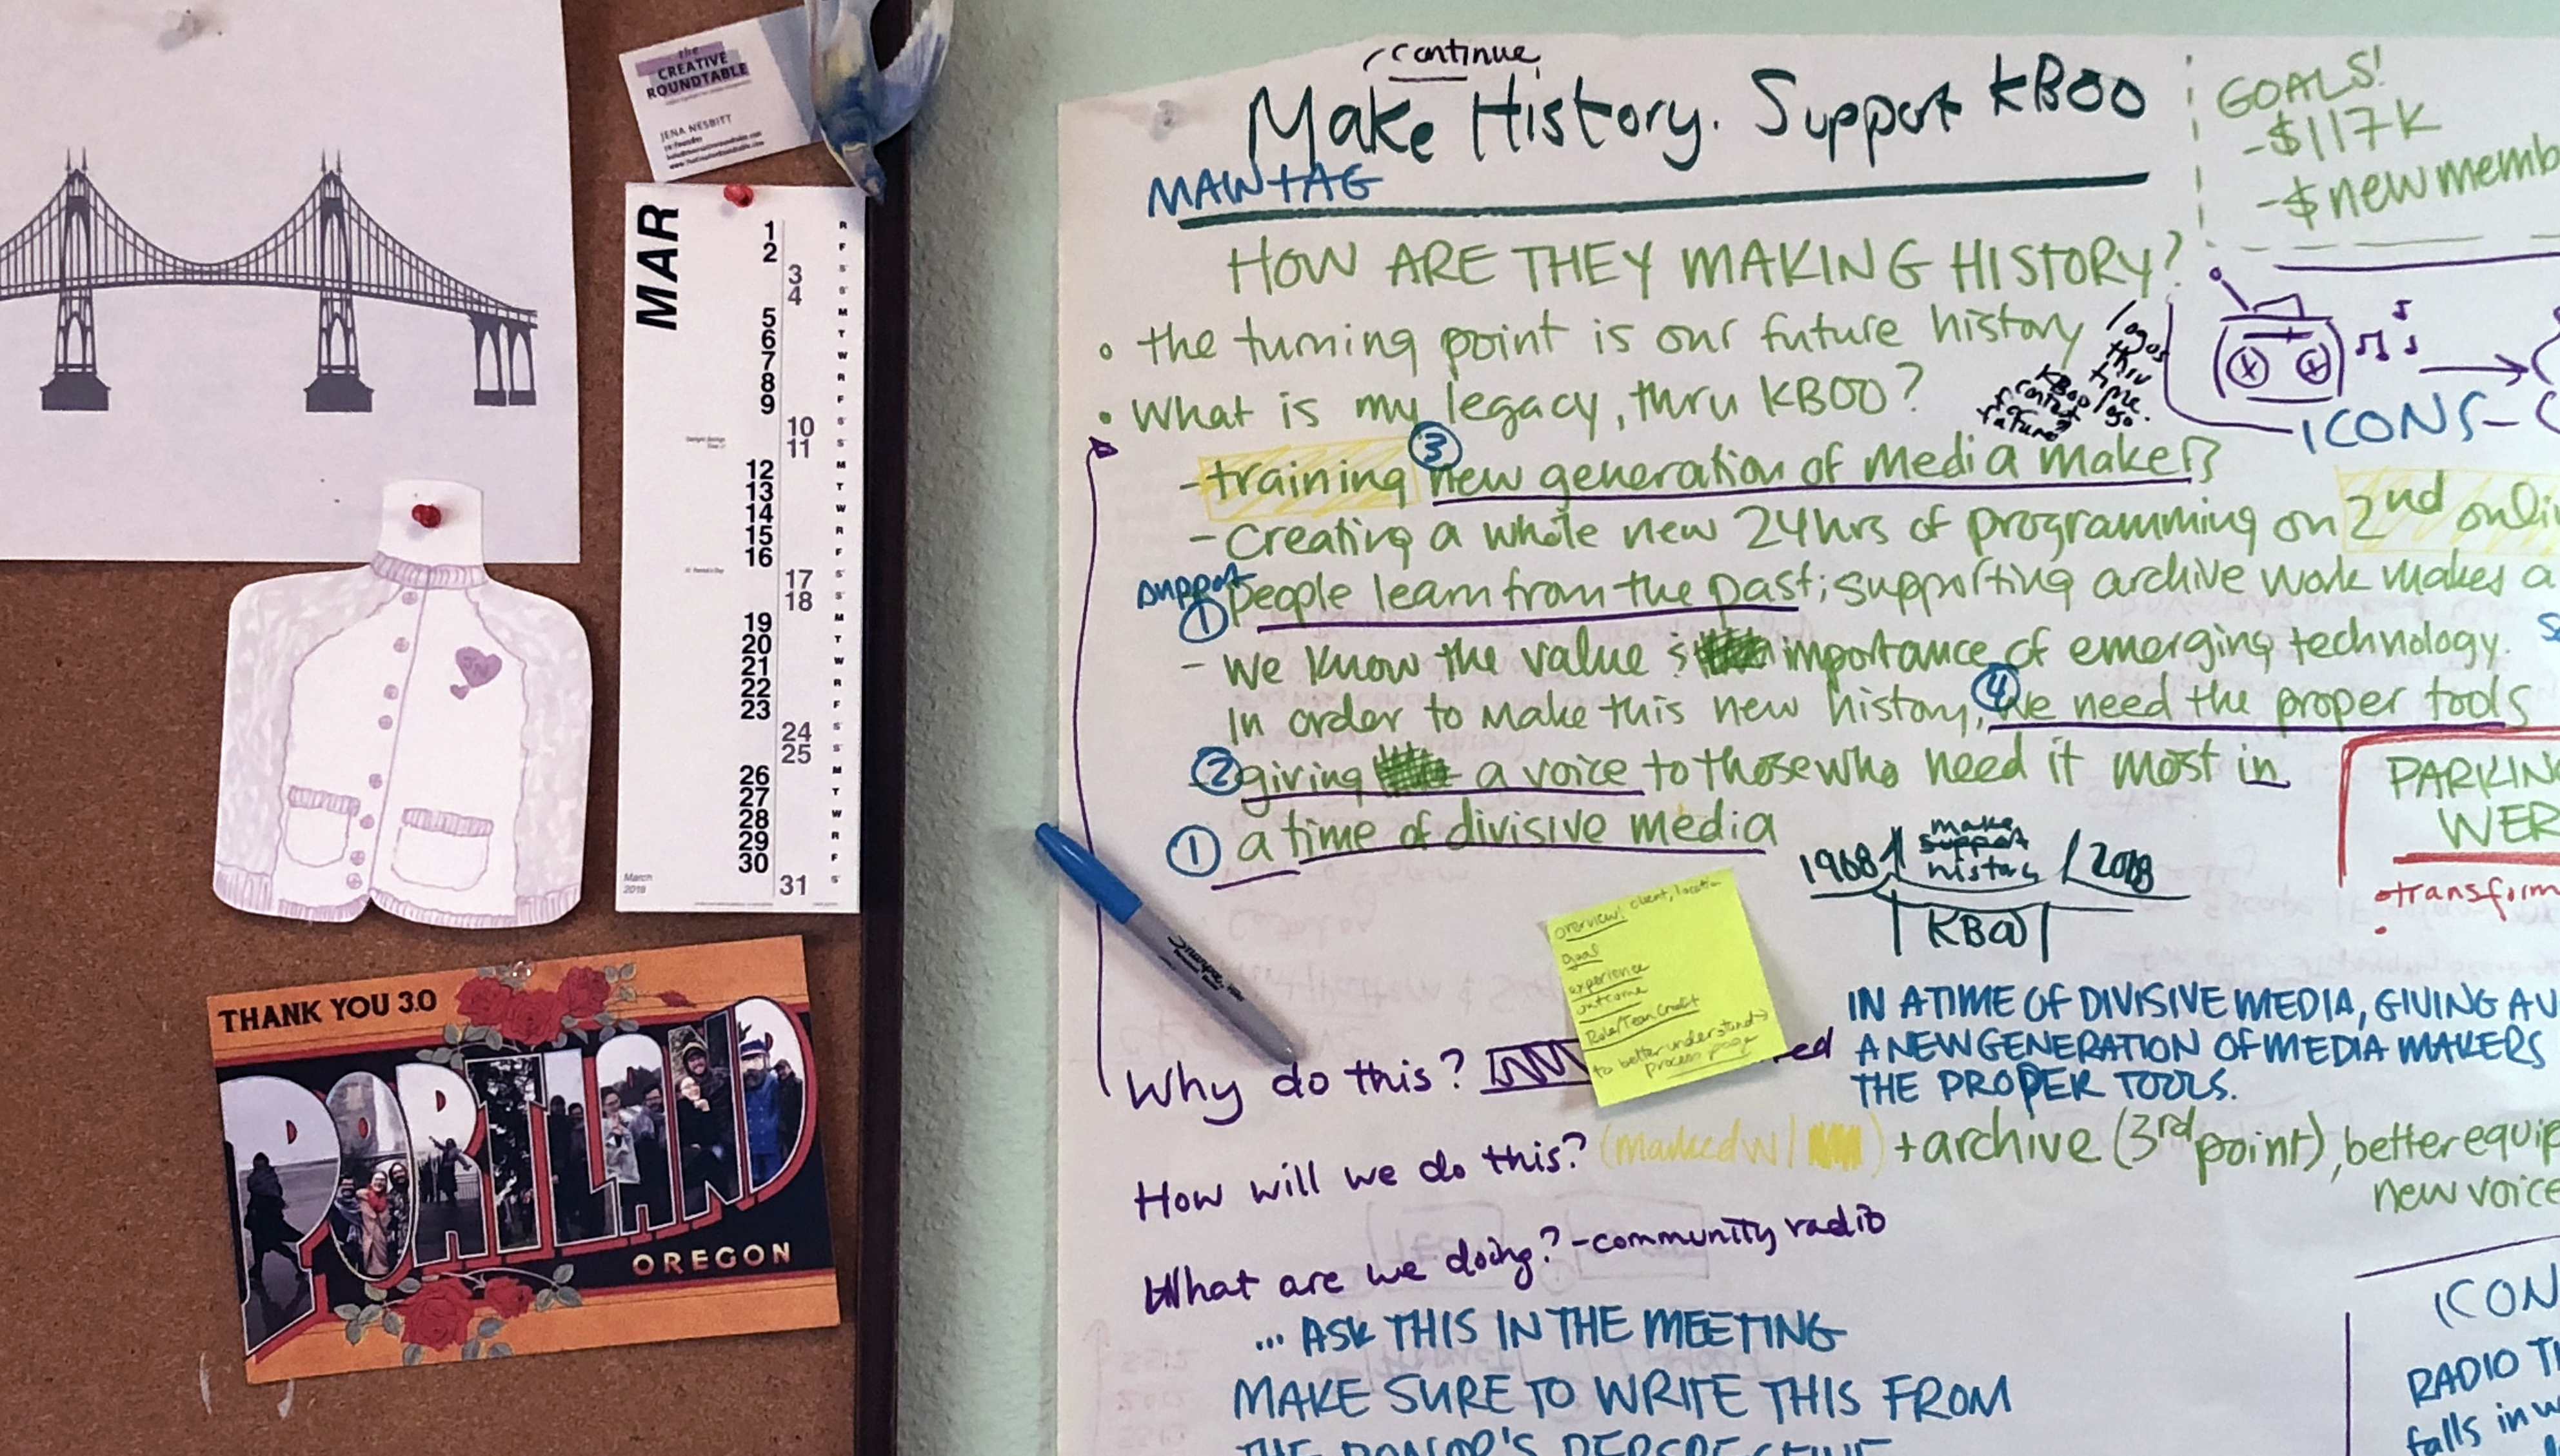 the
CREATIVE
ROUNDTABLE
JENA NESBITT
www.theCreativeRoundtable.com
MAR
1 R
2 F
3 S
4 S
5 M
6 T
7 W
8 R
9 F
10 S
11 S
12 M
13 T
14 W
15 R
16 F
17 S
18 S
19 M
20 T
21 W
22 R
23 F
24 S
25 S
26 M
27 T
28 W
29 R
30 F
31 S
March
2018
THANK YOU 3.0
PORTLAND
OREGON
continue
Make History. Support KBOO
MANTAG
HOW ARE THEY MAKING HISTORY?
• the turning point is our future history
• What is my legacy, thru KBOO?
- training ③ new generation of media makers
- creating a whole new 24hrs of programming on 2nd onli
support
① people learn from the past; supporting archive work makes a
- we know the value importance of emerging technology.
In order to make this new history, ④ we need the proper tools
② giving a voice to those who need it most in
① a time of divisive media
logos
thru
time.
KBOO logo
GOALS!
- $117K
- $ new memb
ICONS-
PARKIN
WER
• transform
1968
make
support
history
KBOO
Sharpie
overview: client, location
goal
experience
outcome
Role/Team Credit
to better understand →
process page
IN A TIME OF DIVISIVE MEDIA, GIVING A V
A NEW GENERATION OF MEDIA MAKERS
THE PROPER TOOLS.
Why do this?
How will we do this? (marked w/ ) + archive (3rd point), better equip
new voice
What are we doing? - community radio
... ASK THIS IN THE MEETING
MAKE SURE TO WRITE THIS FROM
THE DONOR'S PERSPECTIVE
ICON
RADIO T
falls in w